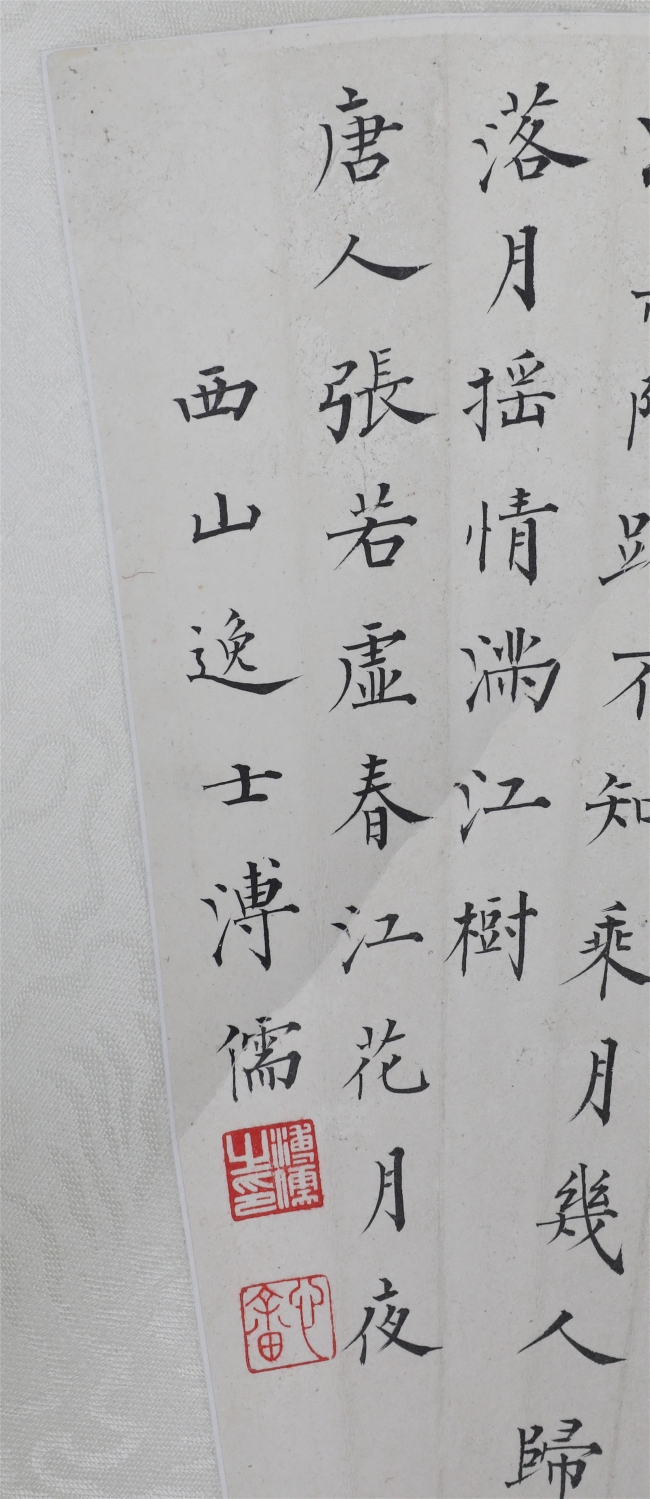 路不知乘月幾人歸
落月搖情滿江樹
唐人張若虛春江花月夜
西山逸士溥儒
溥儒之印
心畬